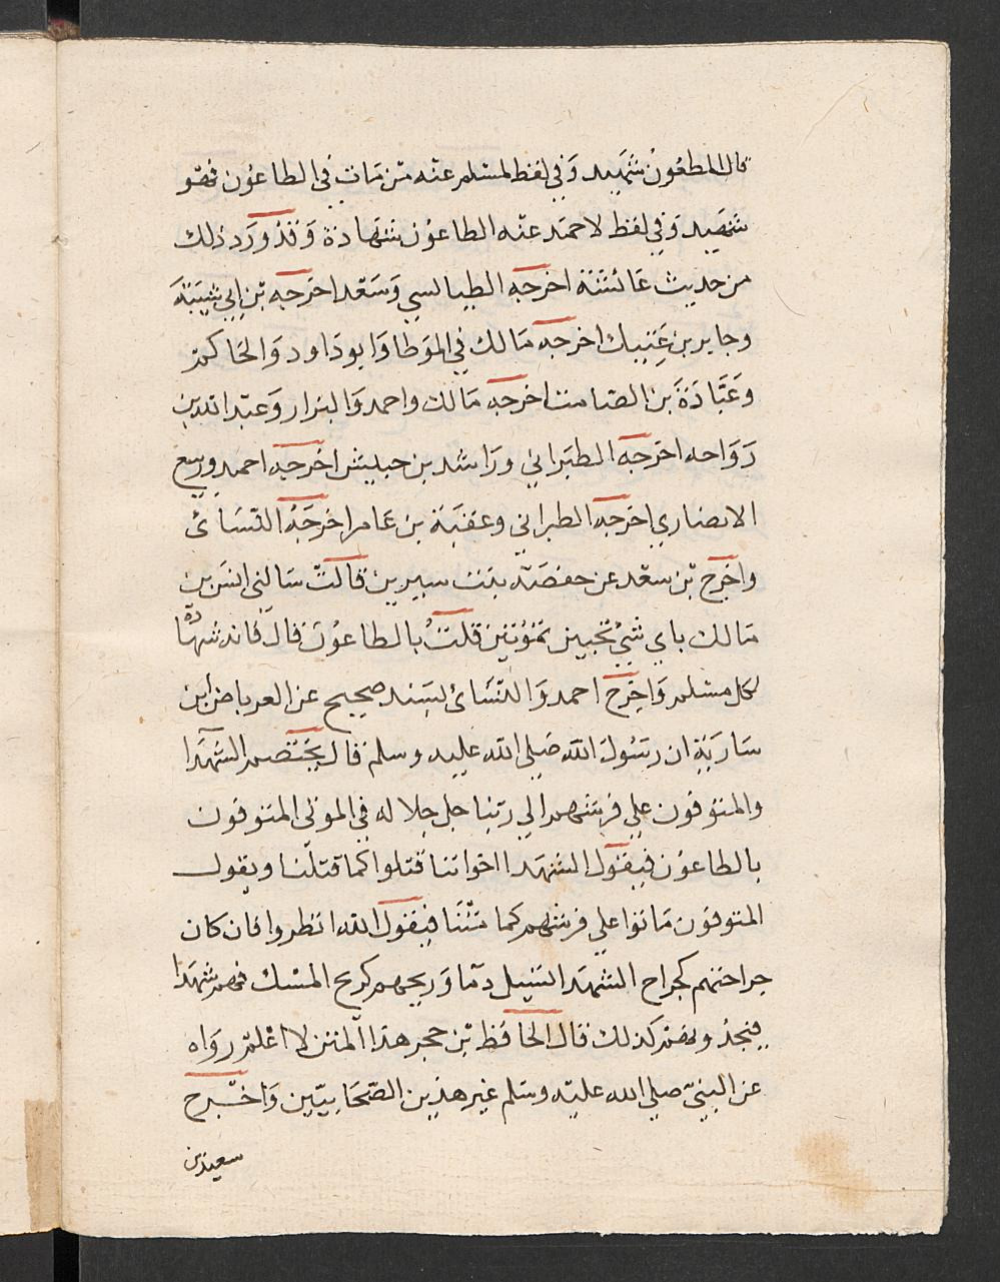 قال المطعون شهيد وفي لفظ لمسلم عنه من مات في الطاعون فهو
شهيد وفي لفظ لاحمد عنه الطاعون شهادة وقد ورد ذلك
من حديث عائشة اخرجه الطيالسي وسعد اخرجه بن ابي شيبة
وجابر بن عتيك اخرجه مالك في الموطا وابو داود والحاكم
وعبادة بن الصامت اخرجه مالك واحمد والبزار وعبد الله بن
رواحه اخرجه الطبراني وراشد بن حبيش اخرجه احمد وربيع
الانصاري اخرجه الطبراني وعقبة بن عامر اخرجه النسائ
واخرج بن سعد عن حفصة بنت سيرين قالت سالني انس بن
مالك باي شي تحبين تموتين قلت بالطاعون قال فانه شهادة
لكل مسلم واخرج احمد والنسائ بسند صحيح عن العرباض ابن
سارية ان رسول الله صلي الله عليه وسلم قال يختصم الشهدا
والمتوفون علي فرشهم الي ربنا جل جلاله في الموتي المتوفون
بالطاعون فيقول الشهدا اخواننا قتلوا كما قتلنا ويقول
المتوفون ماتوا علي فرشهم كما متنا فيقول الله انظروا فان كان
جراحتهم كجراح الشهدا تسيل دما وريحهم كريح المسك فهم شهدا
فيجدونهم كذلك قال الحافظ بن حجر هذا المتن لا اعلم رواه
عن النبي صلي الله عليه وسلم غير هذين الصحابيين واخرج
سعيد بن